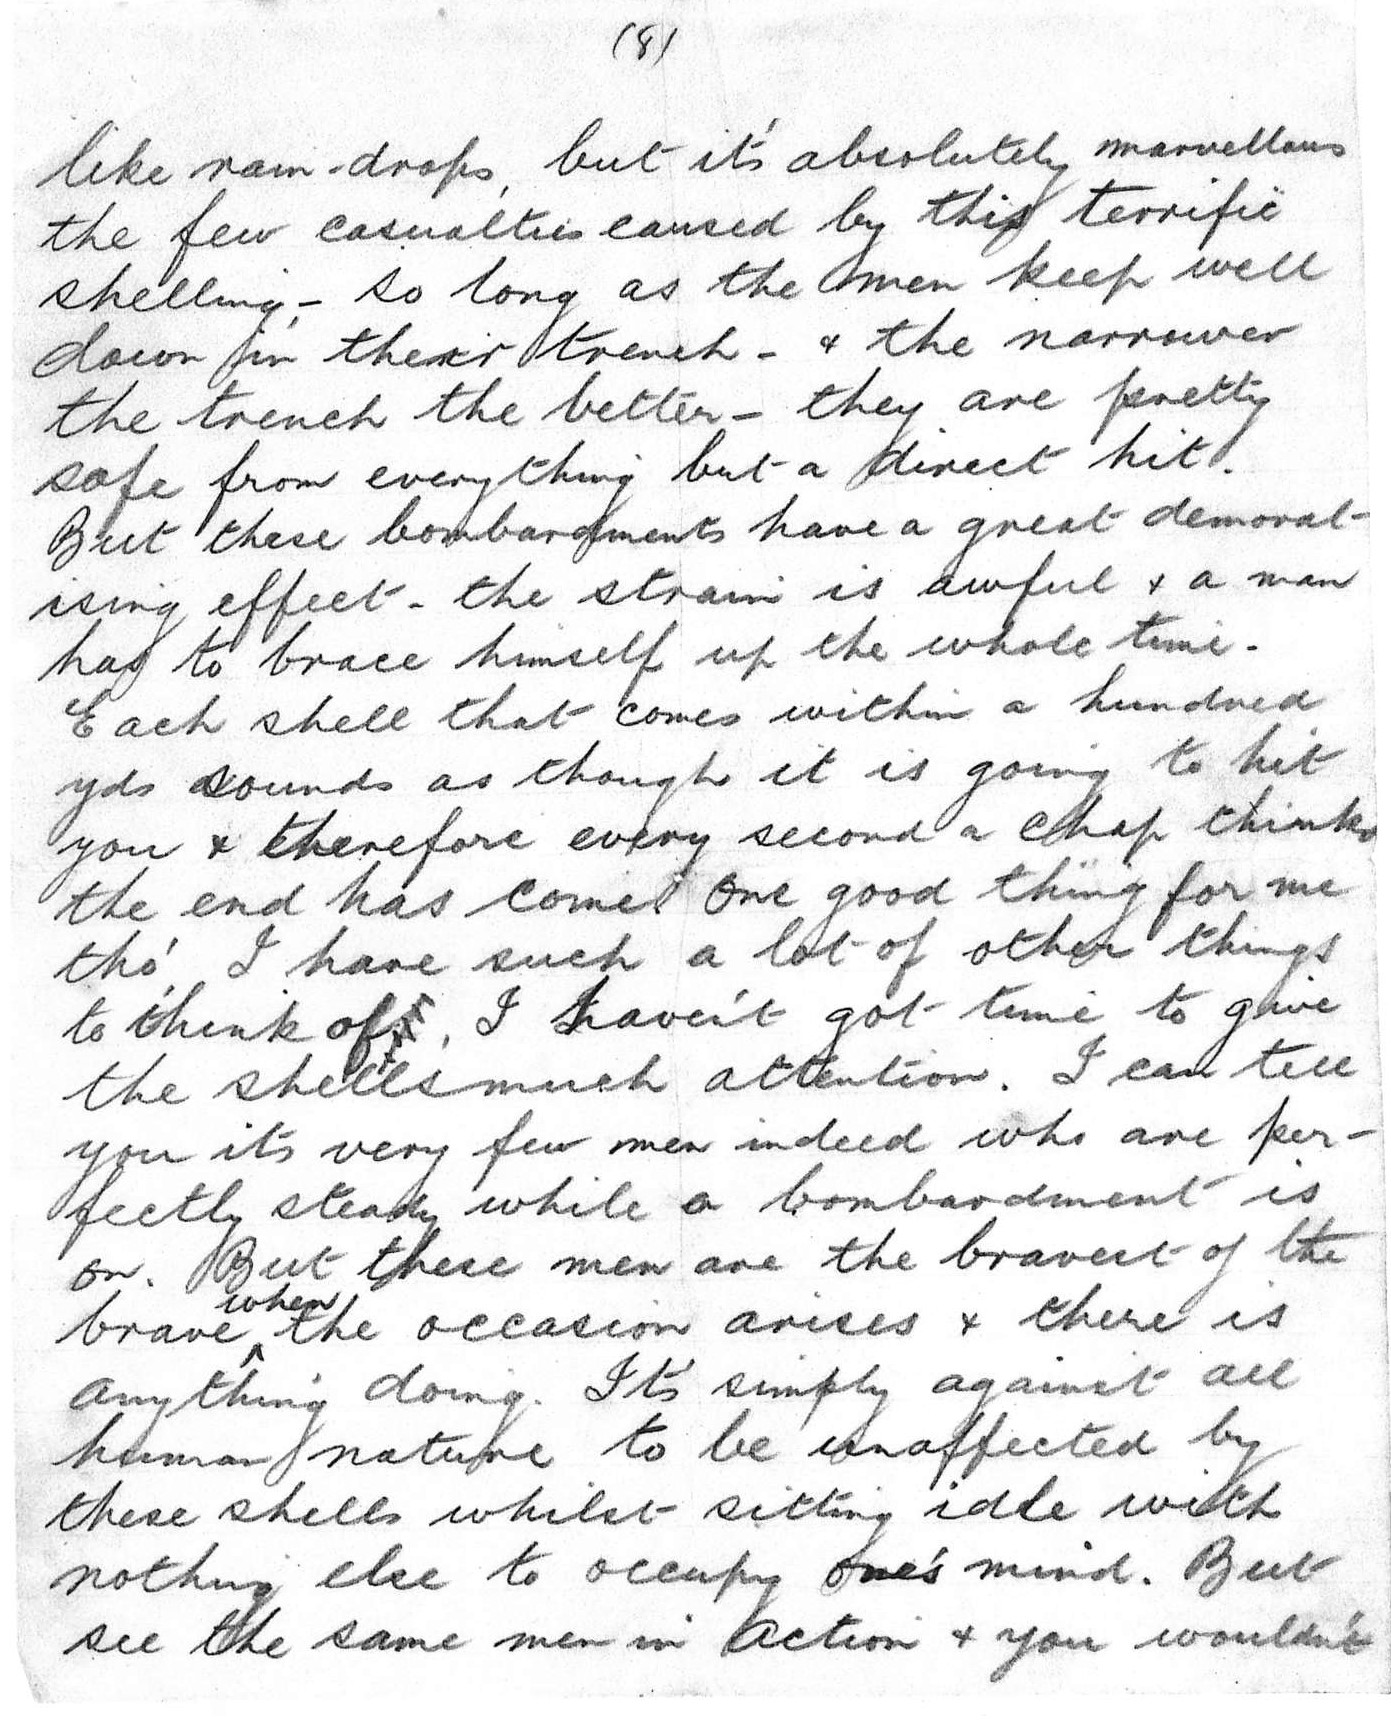 (8)
like rain-drops, but it's absolutely marvellous
the few casualties caused by this terrific
shelling, - so long as the men keep well
down in their trench - & the narrower
the trench the better - they are pretty
safe from everything but a direct hit.
But these bombardments have a great demoral-
ising effect - the strain is awful & a man
has to brace himself up the whole time.
Each shell that comes within a hundred
yds sounds as though it is going to hit
you & therefore every second a chap thinks
the end has come! One good thing for me
tho', I have such a lot of other things
to think of, I haven't got time to give
the shells much attention. I can tell
you it's very few men indeed who are per-
fectly steady while a bombardment is
on. But these men are the bravest of the
brave when the occasion arises & there is
anything doing. It's simply against all
human nature to be unaffected by
these shells whilst sitting idle with
nothing else to occupy one's mind. But
see the same men in action & you wouldn't